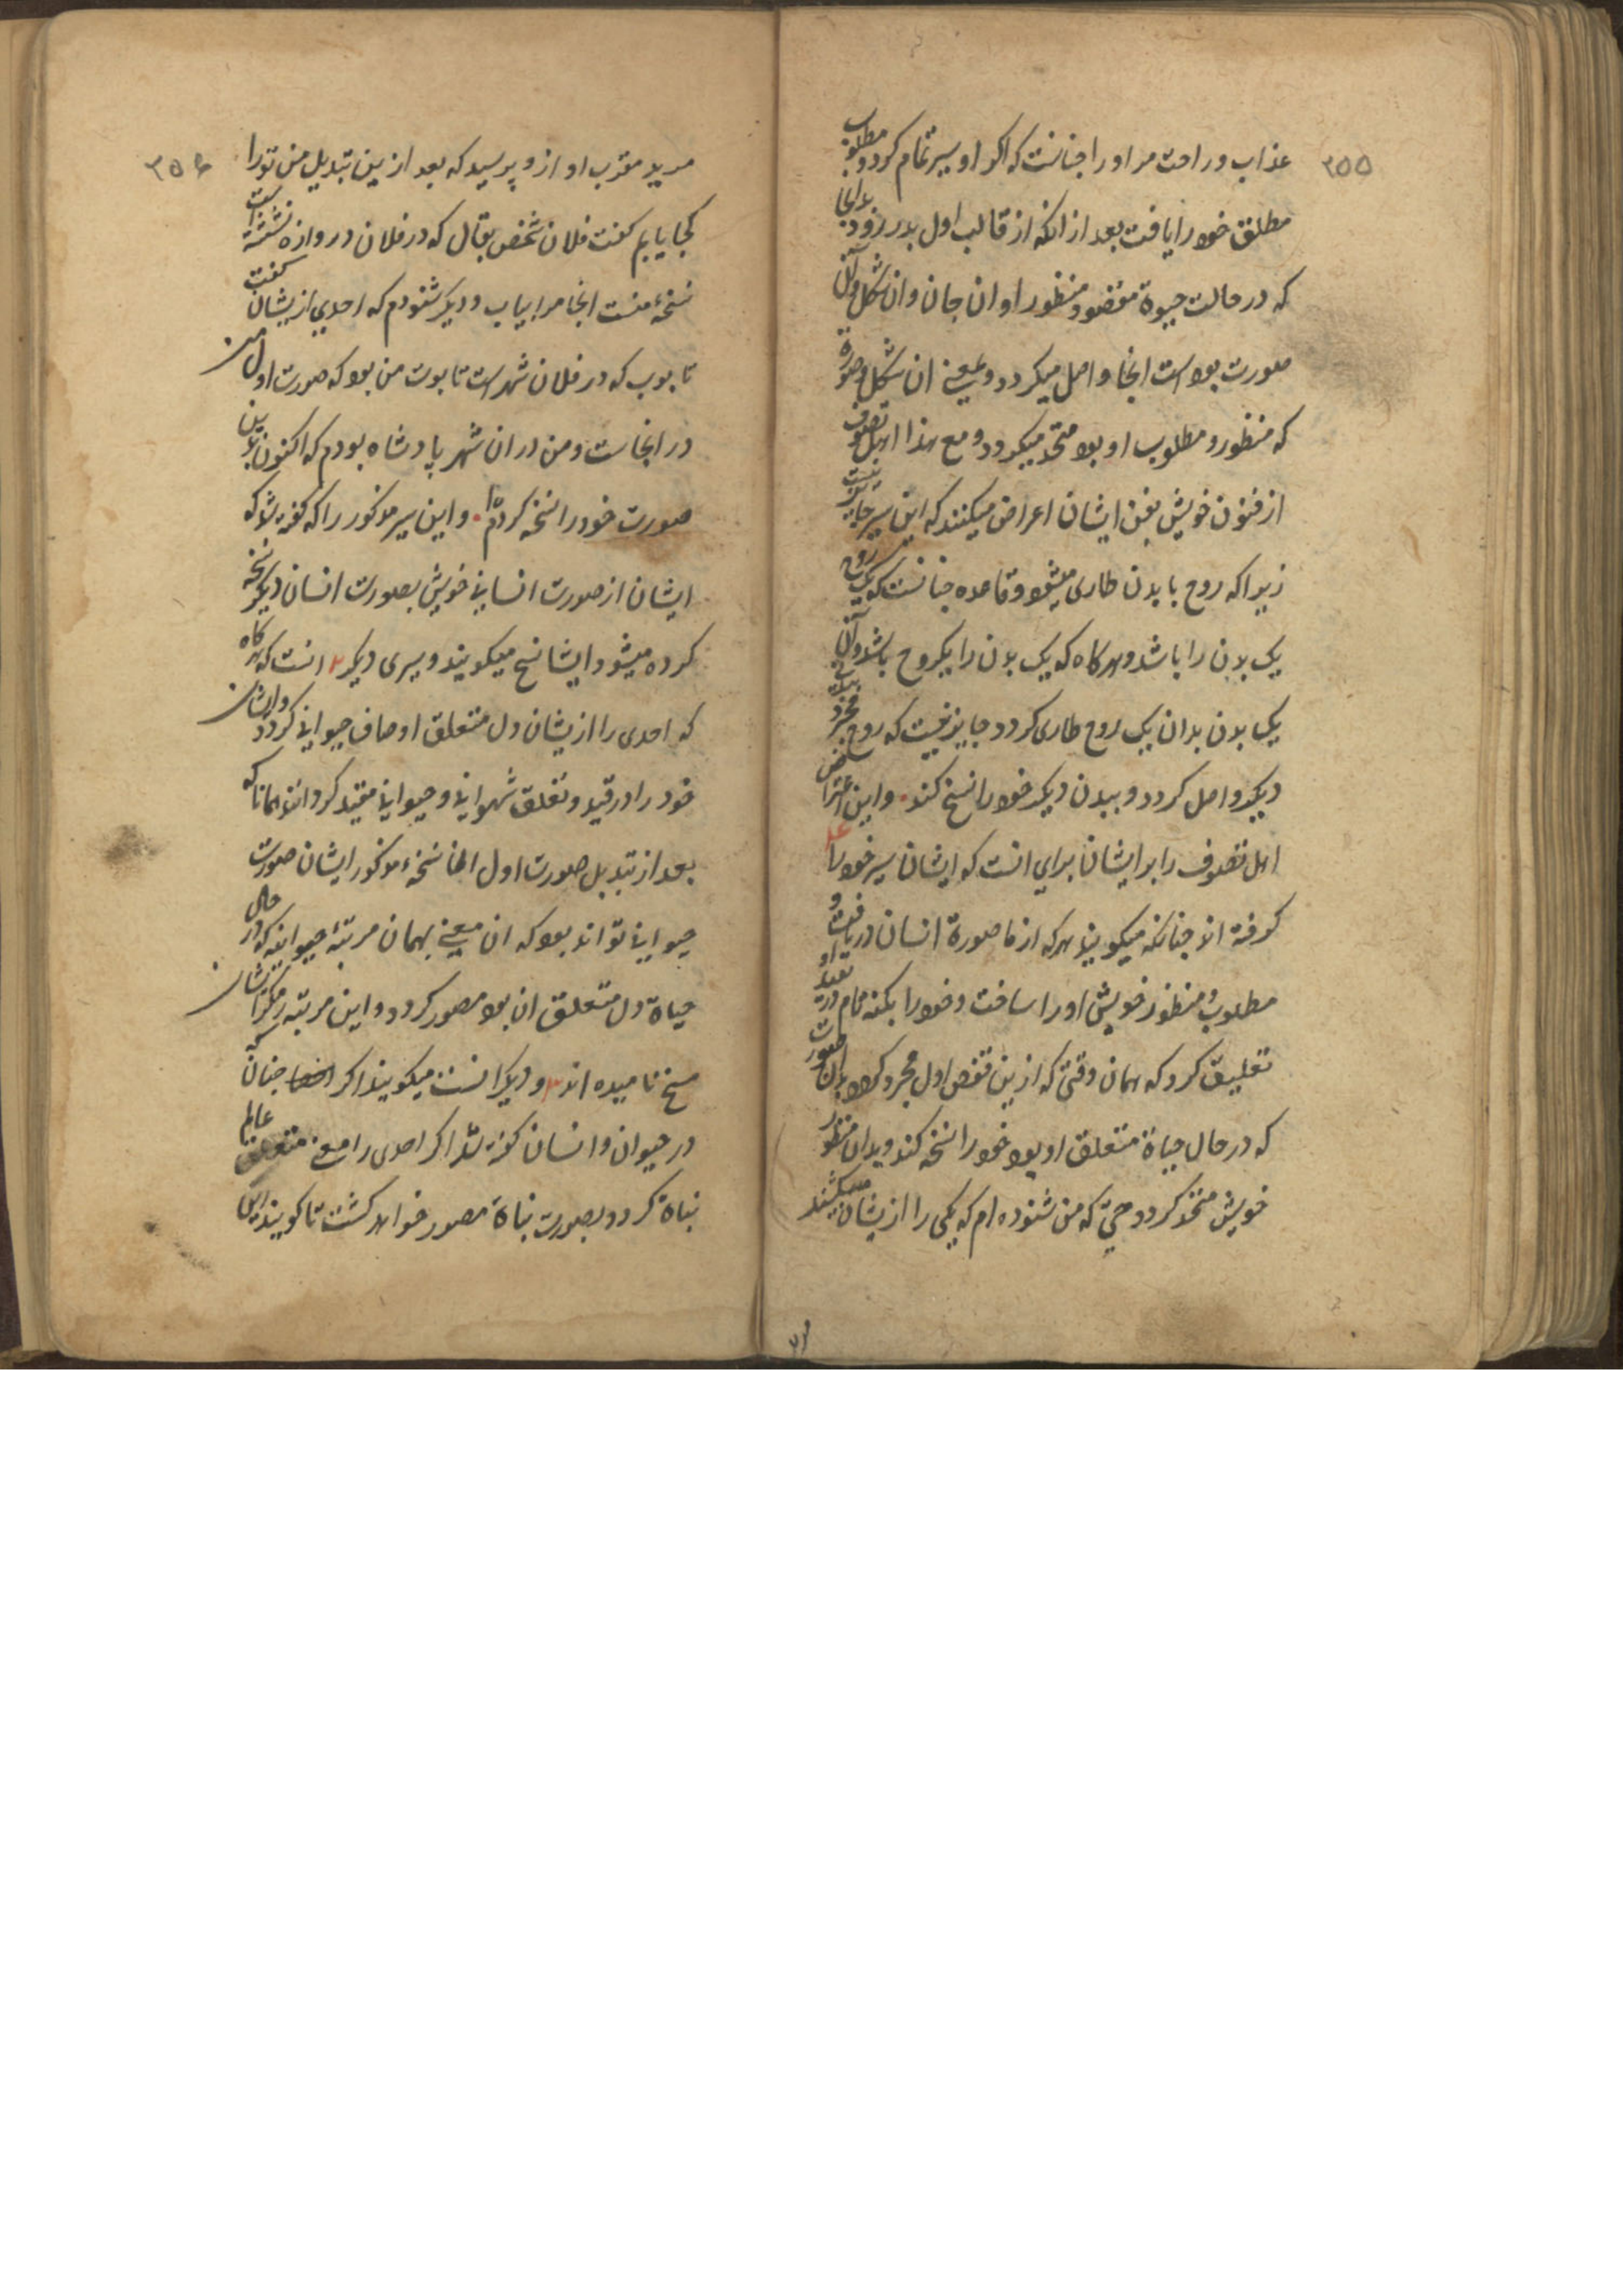 ۲۵۵
عذاب و راحت مر او را چنانست که اگر او سیر تمام کرد و مطلوب
مطلق خود را یافت بعد از انکه از قالب اول بدر رود بدانجا
که در حالت حیوة مقصود و منظور او ان جان وان شکل وآن
صورت بود است انجا واصل میکردد و بعینه ان شکل و صورة
که منظور و مطلوب او بود متحد میکردد و مع هذا اهل تصوف
از فنون خویش بفن ایشان اعراض میکنند که این سیر جایز نیست
زیرا که روح با بدن طاری میشود و قاعده چنانست که یک روح
یک بدن را باشد و هرکاه که یک بدن را یکروح باشد وآن
یک بدن بدان یک روح طاری کردد جایز نیست که روح مجرد
دیکر واصل کردد و ببدن دیکر خود را نسخ کند. و این اعتراض
اهل تصوف را بر ایشان برای انست که ایشان سیر خود را
کرفته اند چنانکه میکویند هرکه از ما صورة انسان دریافت و
مطلوب و منظور خویش او را ساخت و خود را بکنه تمام در قید او
تعلیق کرد که همان وقتی که ازین قفص اول مجرد کردد بدان صورت
که در حال حیاة متعلق او بود خود را نسخه کند و بدان منظور
خویش متحد کردد حتی که من شنوده ام که یکی را ازیشان میکشتند
۲۵۶
مرید مقرب او ازو پرسید که بعد ازین تبدیل من تورا
کجا یابم کفت فلان شخص بقال که در فلان دروازه نشسته است
نسخهٔ منست انجا مرا بیاب و دیکر شنودم که احدی ازیشان کفت
تابوب که در فلان شهر است تابوت من بود که صورت اول من
در انجاست و من در ان شهر پادشاه بودم که اکنون بدین
صورت خود را نسخه کرده ام. و این سیر مذکور را که کفته شد که
ایشان از صورت انسانی خویش بصورت انسان دیکر نسخه
کرده میشود ایشان نسخ میکویند و سیری دیکر ۲ انست که هرکاه
که احدی را ازیشان دل متعلق اوصاف حیوانی کردد و ایشان
خود را در قید و تعلق شهوانی و حیوانی مقید کردانند همانا که
بعد از تبدیل صورت اول انجا نسخهٔ مذکور ایشان صورت
حیوانی تواند بود که ان معنی بهمان مرتبهٔ حیوانیه که در حال
حیاة دل متعلق ان بود مصور کردد و این مرتبه را مکر ایشان
مسخ نامیده اند ۳ و دیکر انست میکویند اکر چنان که
در حیوان و انسان کفته شد اکر احدی را معنی متعلق عالم
نباة کردد بصورت نباة مصور خواهد کشت تا کویند این